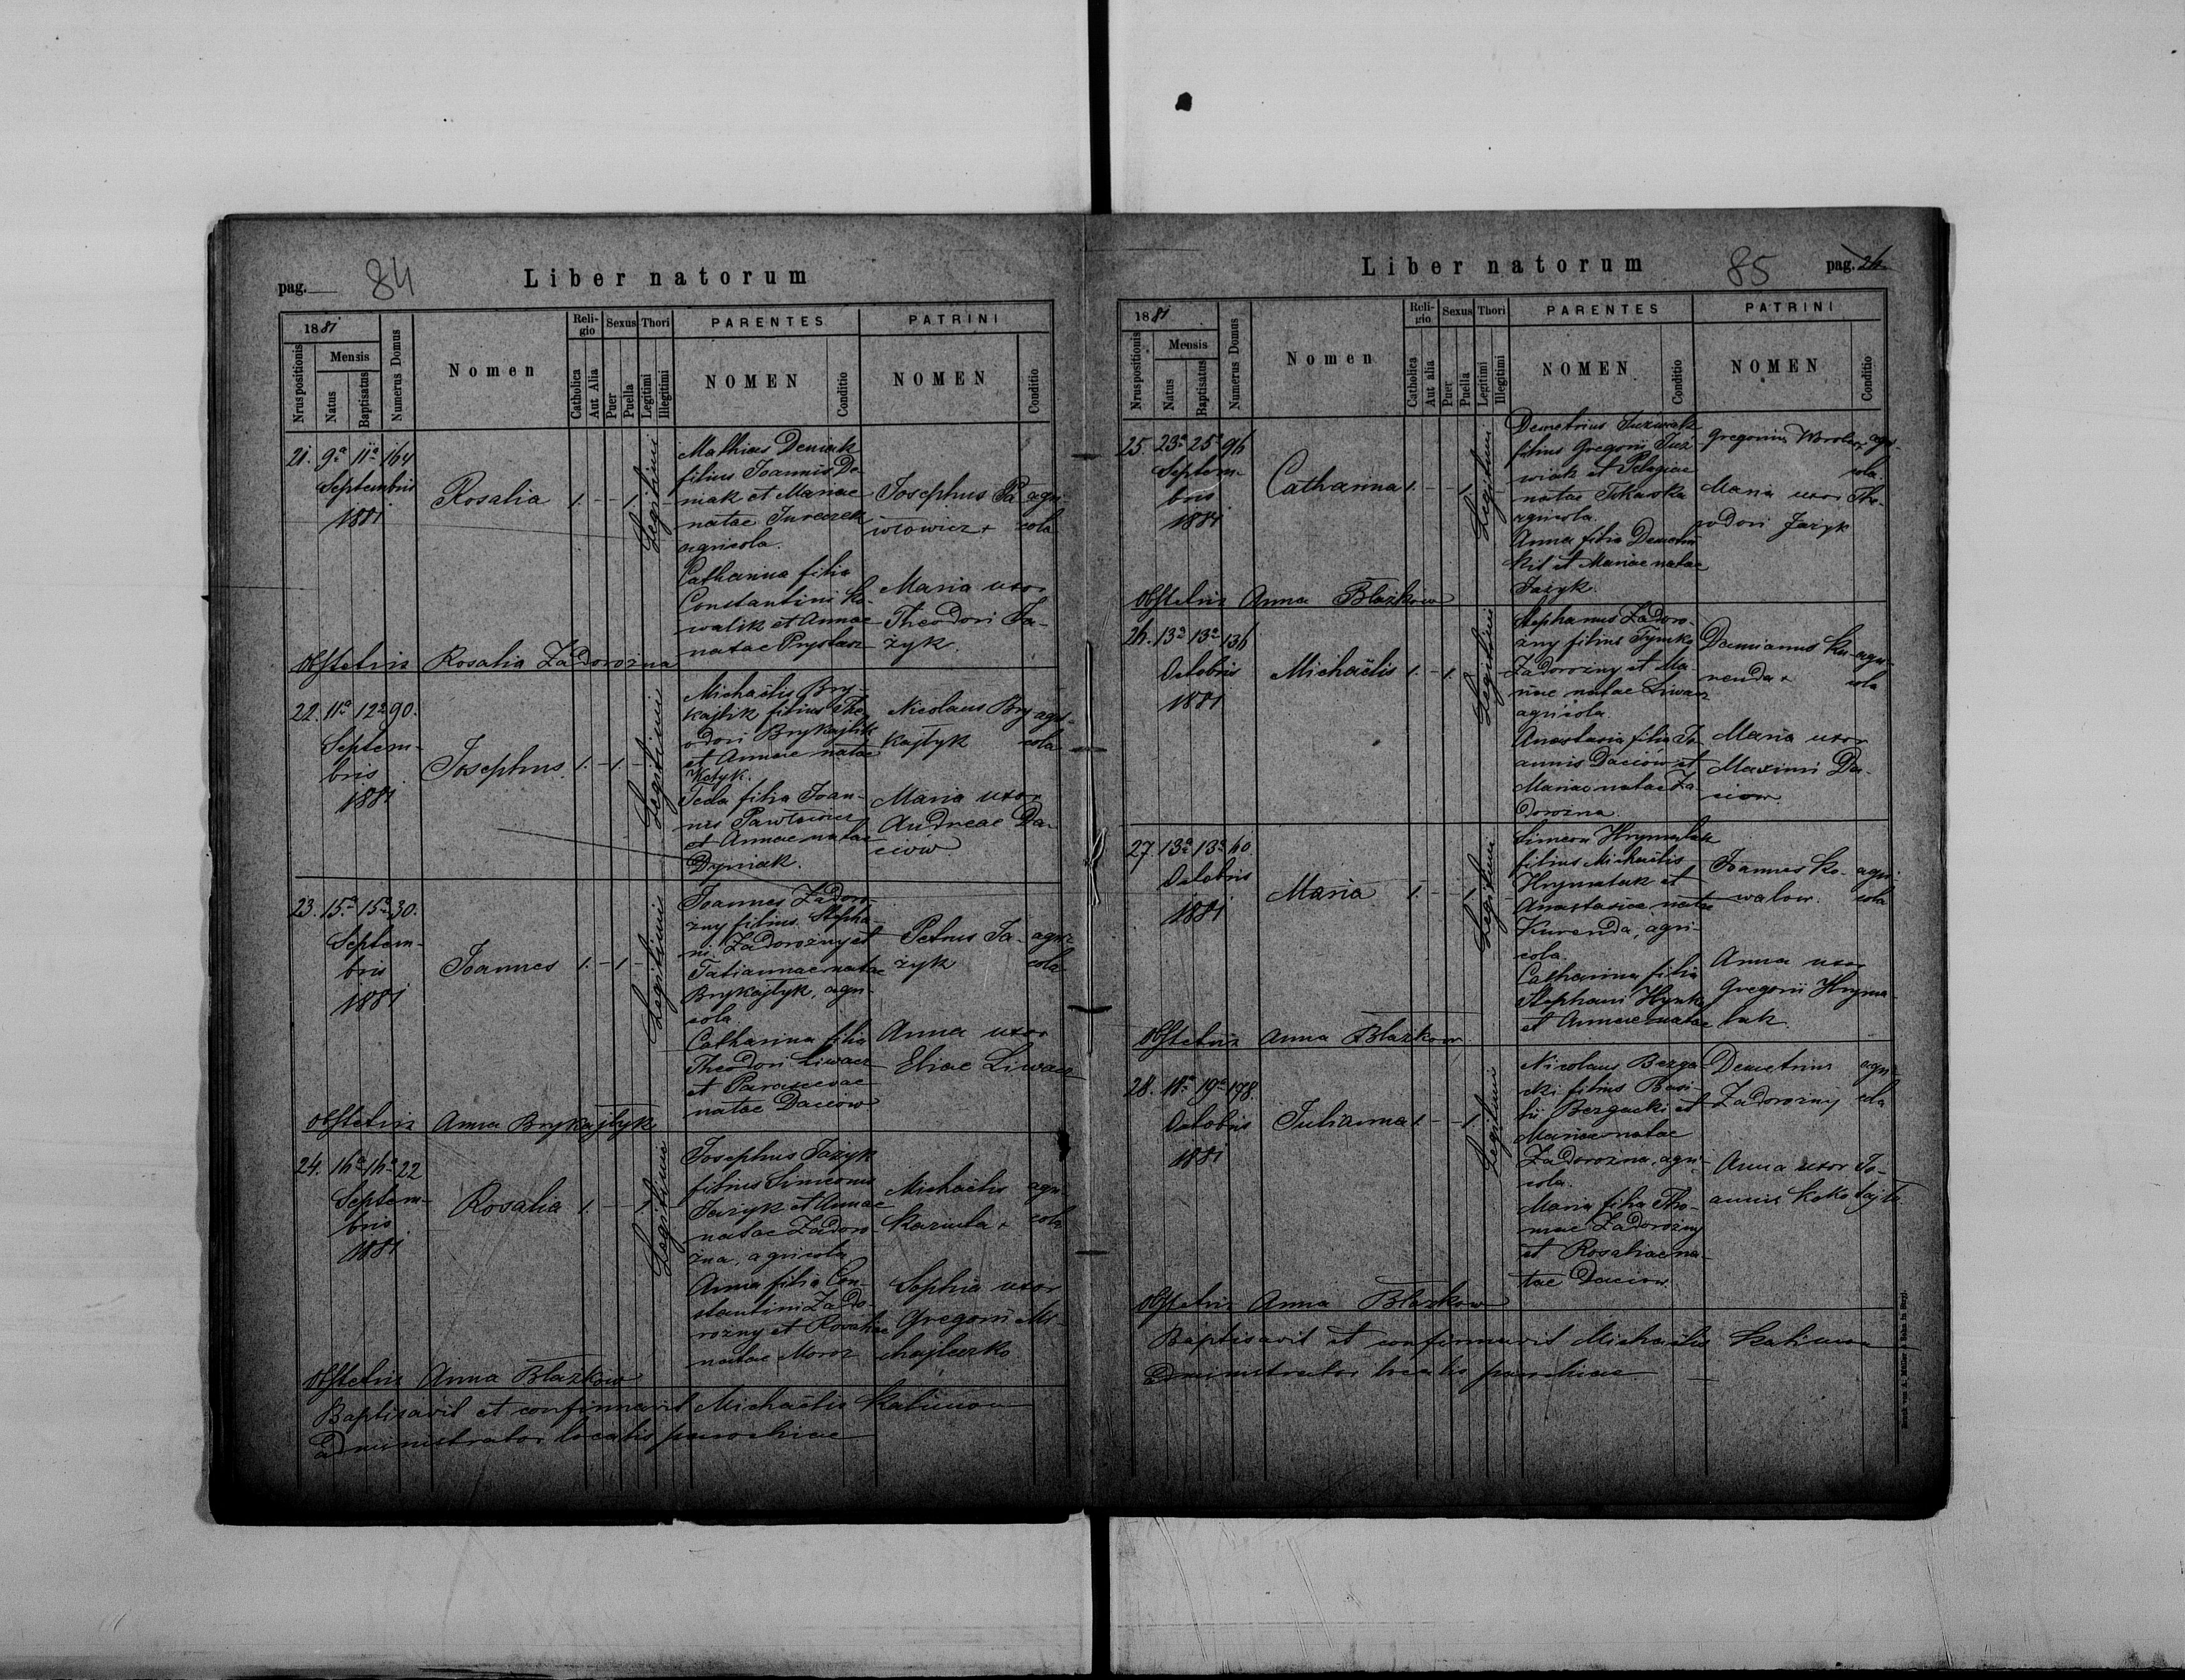 pag. 84
Liber natorum
1881
Nrus positionis
Mensis
Natus
Baptisatus
Numerus Domus
Nomen
Religio
Catholica
Aut Alia
Sexus
Puer
Puella
Thori
Legitimi
Illegitimi
PARENTES
NOMEN
Conditio
PATRINI
NOMEN
Conditio
21. 9a 11a 164
Septembris
1881
Rosalia
1. - - 1.
Legitimi
Mathias Demiak
filius Joannis De-
niak et Mariae
natae Jureczek
agricola.
Catharina filia
Constantini Ko-
walik et Annae
natae Prystasz
Josephus Pa- agri-
wlowicz + cola
Maria uxor
Theodori Ja-
zyk.
Obstetrix Rosalia Zadorożna
22. 11a 12a 90.
Septem-
bris
1881
Josephus.
1. - 1. -
Legitimi
Michaëlis Bry-
kajlik filius The-
odori Brykajlik
et Annae natae
Tecla filia Joan-
nis Pawlowicz
et Annae natae
Dymiak.
Nicolaus Bry- agri-
kajlyk cola
Maria uxor
Andreae Da-
ciów
23. 15a 15a 30.
Septem-
bris
1881
Joannes
1. - 1 -
Legitimi
Joannes Zadoro-
żny filius Stepha-
ni Zadorożny et
Tatiannae natae
Brykajlyk, agri-
cola
Catharina filia
Theodori Liwacz
et Parascevae
natae Daciów
Petrus Ja- agri-
żyk cola
Anna uxor
Eliae Liwacz
Obstetrix Anna Brykajlyk
24. 16a 16a 22
Septem-
bris
1881
Rosalia
1. - - 1.
Legitimi
Josephus Jażyk
filius Simeonis
Jażyk et Annae
natae Zadoro-
żna, agricola
Anna filia Con-
stantini Zado-
rożny et Rosaliae
natae Moroz
Michaëlis agri-
+ cola
Sophia uxor
Gregorii Mi-
chajleczko
Obstetrix Anna Blażkow
Baptisavit et confirmavit Michaëlis Kalimon
Administrator localis parochiae
Liber natorum
85 pag. 24
1881
Nrus positionis
Mensis
Natus
Baptisatus
Numerus Domus
Nomen
Religio
Catholica
Aut alia
Sexus
Puer
Puella
Thori
Legitimi
Illegitimi
PARENTES
NOMEN
Conditio
PATRINI
NOMEN
Conditio
25. 23a 25a 96
Septem-
bris
1881
Catharina
1. - - 1.
Legitimi
Demetrius Juzwiak
filius Gregorii Juz-
wiak et Pelagiae
natae
agricola.
Anna filia Demetrii
et Mariae natae
Jażyk.
Gregorius agri-
cola
Maria uxor The-
odori Jażyk
Obstetrix Anna Blażkow
26. 13a 13a 136
Octobris
1881
Michaëlis
1. - 1.
Legitimi
Stephanus Zadoro-
żny filius Tymka
Zadorożny et Ma-
riae natae Liwacz
agricola.
Anastasia filia Jo-
annis Daciów et
Mariae natae Za-
dorożna
Damianus Ku- agri-
renda + cola
Maria uxor
Maximi Da-
ciow.
27. 13a 13a 60.
Octobris
1881
Maria
1. - - 1.
Legitimi
Simeon Hrymalak
filius Michaëlis
Hrymalak et
Anastasiae natae
Kurenda, agri-
cola.
Catharina filia
Stephani
et Annae natae
Joannes Ko- agri-
walow. cola
Anna uxor
Gregorii Hryma-
lak.
Obstetrix Anna Blażkow
28. 18a 19a 178.
Octobris
1881
Julianna
1 - - 1
Legitimi
Nicolaus Bezga-
cki filius Basi-
lii Bezgacki et
Mariae natae
Zadorożna, agri-
cola.
Maria filia Tho-
mae Zadorożny
et Rosaliae na-
tae Daciow.
Demetrius agri-
Zadorożny cola
Anna uxor Jo-
annis
Obstetrix Anna Blażkow
Baptisavit et confirmavit Michaëlis Kalimon
Administrator localis parochiae